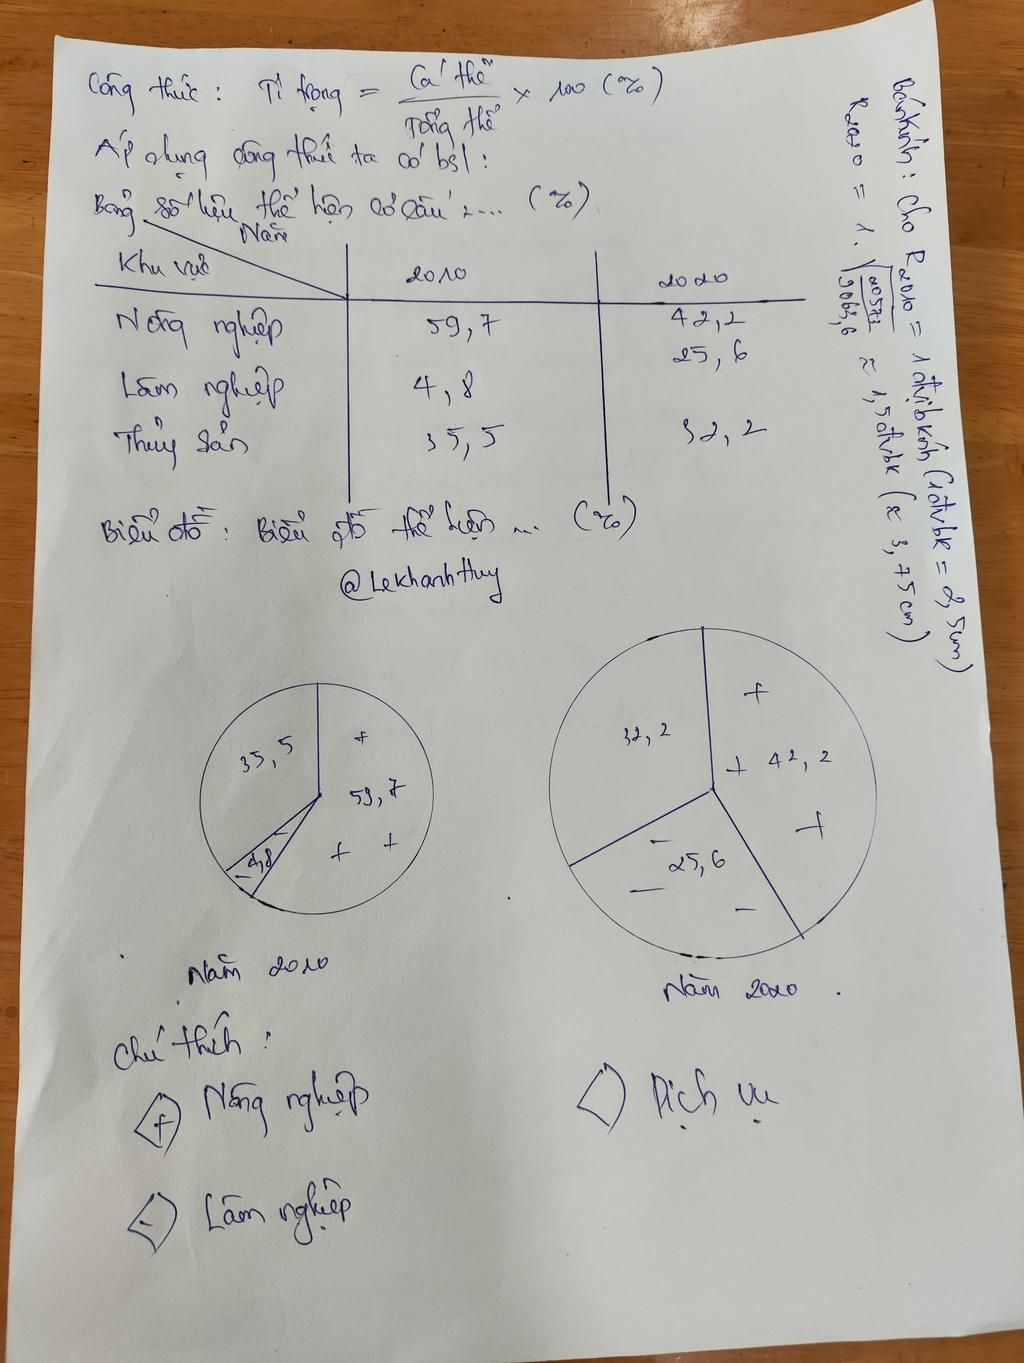 Công thức: Tỉ trọng = Cá thể / Tổng thể × 100 (%)
Áp dụng công thức ta có bsl:
Bảng số liệu thể hiện cơ cấu .... (%)
Năm
Khu vực 2010 2020
Nông nghiệp 59,7 42,2
Lâm nghiệp 4,8 25,6
Thủy sản 35,5 32,2
Biểu đồ: Biểu đồ thể hiện ... (%)
@Lekhanhthuy
Bán kính: Cho R2010 = 1đvị bkính (1đvbk = 2,5cm)
R2020 = 1.√ 20573 / 9063,6 ≈ 1,5đvbk (≈ 3,75cm)
35,5
+
59,7
+ +
4,8
-
-
Năm 2010
32,2
+
+ 42,2
+
-
25,6
-
-
Năm 2020
Chú thích:
+ Nông nghiệp
Dịch vụ
- Lâm nghiệp